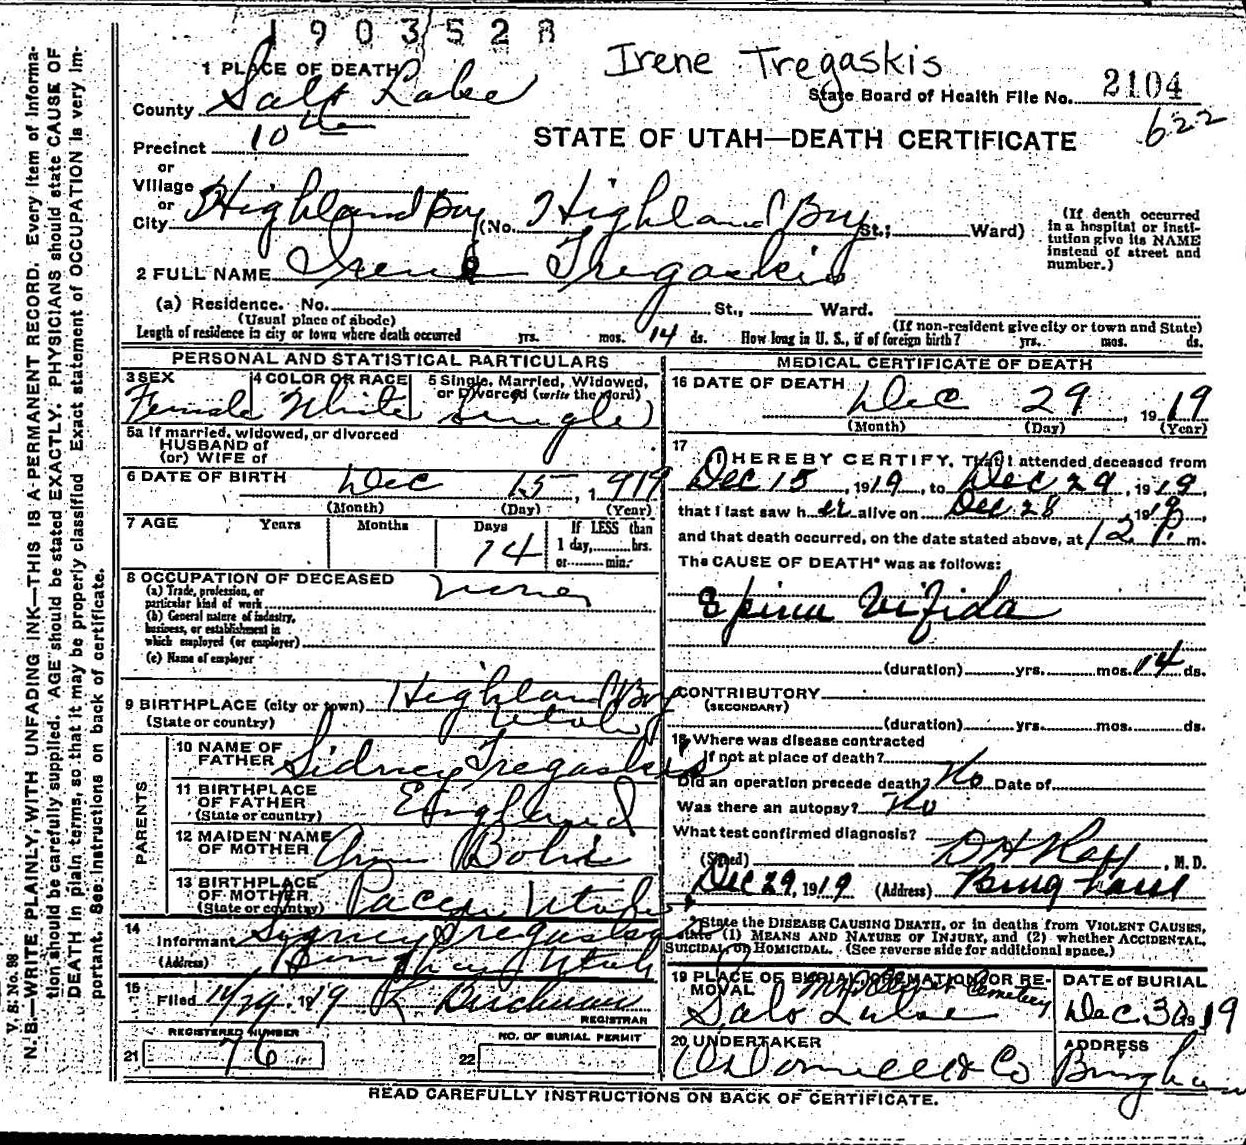 1903528
Irene Tregaskis
1 PLACE OF DEATH
State Board of Health File No. 2104
County Salt Lake
622
STATE OF UTAH—DEATH CERTIFICATE
Precinct 10th
or
Village
or
City Highland Boy (No. Highland Boy St.; Ward)
(If death occurred in a hospital or institution give its NAME instead of street and number.)
2 FULL NAME Irene Tregaskis
(a) Residence. No. St., Ward.
(Usual place of abode)
(If non-resident give city or town and State)
Length of residence in city or town where death occurred yrs. mos. 14 ds. How long in U. S., if of foreign birth? yrs. mos. ds.
PERSONAL AND STATISTICAL PARTICULARS
3 SEX Female
4 COLOR OR RACE White
5 Single, Married, Widowed, or Divorced (write the word) Single
5a If married, widowed, or divorced
HUSBAND of
(or) WIFE of
6 DATE OF BIRTH Dec 15, 1919
(Month) (Day) (Year)
7 AGE Years Months Days 14
If LESS than
1 day, hrs.
or min.
8 OCCUPATION OF DECEASED none
(a) Trade, profession, or
particular kind of work
(b) General nature of industry,
business, or establishment in
which employed (or employer)
(c) Name of employer
9 BIRTHPLACE (city or town) Highland Boy
(State or country) Utah
PARENTS
10 NAME OF FATHER Sidney Tregaskis
11 BIRTHPLACE OF FATHER
(State or country) England
12 MAIDEN NAME OF MOTHER
13 BIRTHPLACE OF MOTHER
(State or country) Utah
14
Informant Sydney Tregaskis
(Address) Bingham Utah
15
Filed 19 19
REGISTRAR
REGISTERED NUMBER
21 76
NO. OF BURIAL PERMIT
22
MEDICAL CERTIFICATE OF DEATH
16 DATE OF DEATH Dec 29, 1919
(Month) (Day) (Year)
17
I HEREBY CERTIFY, That I attended deceased from
Dec 15, 1919, to Dec 29, 1919,
that I last saw her alive on Dec 28 1919,
and that death occurred, on the date stated above, at 12 P. m.
The CAUSE OF DEATH* was as follows:
Spina Vifida
(duration) yrs. mos. 14 ds.
CONTRIBUTORY
(SECONDARY)
(duration) yrs. mos. ds.
18 Where was disease contracted
if not at place of death?
Did an operation precede death? No Date of
Was there an autopsy? No
What test confirmed diagnosis?
(Signed) D H Ray, M. D.
Dec 29, 1919 (Address) Bingham
*State the DISEASE CAUSING DEATH, or in deaths from VIOLENT CAUSES,
state (1) MEANS AND NATURE OF INJURY, and (2) whether ACCIDENTAL,
SUICIDAL, or HOMICIDAL. (See reverse side for additional space.)
19 PLACE OF BURIAL, CREMATION OR REMOVAL Mt Olivet Cemetery
Salt Lake
DATE of BURIAL
Dec. 30 1919
20 UNDERTAKER
O'Donnell & Co
ADDRESS
Bingham
READ CAREFULLY INSTRUCTIONS ON BACK OF CERTIFICATE.
V. S. No. 98
N. B.—WRITE PLAINLY, WITH UNFADING INK—THIS IS A PERMANENT RECORD. Every item of information should be carefully supplied. AGE should be stated EXACTLY. PHYSICIANS should state CAUSE OF DEATH in plain terms, so that it may be properly classified. Exact statement of OCCUPATION is very important. See instructions on back of certificate.